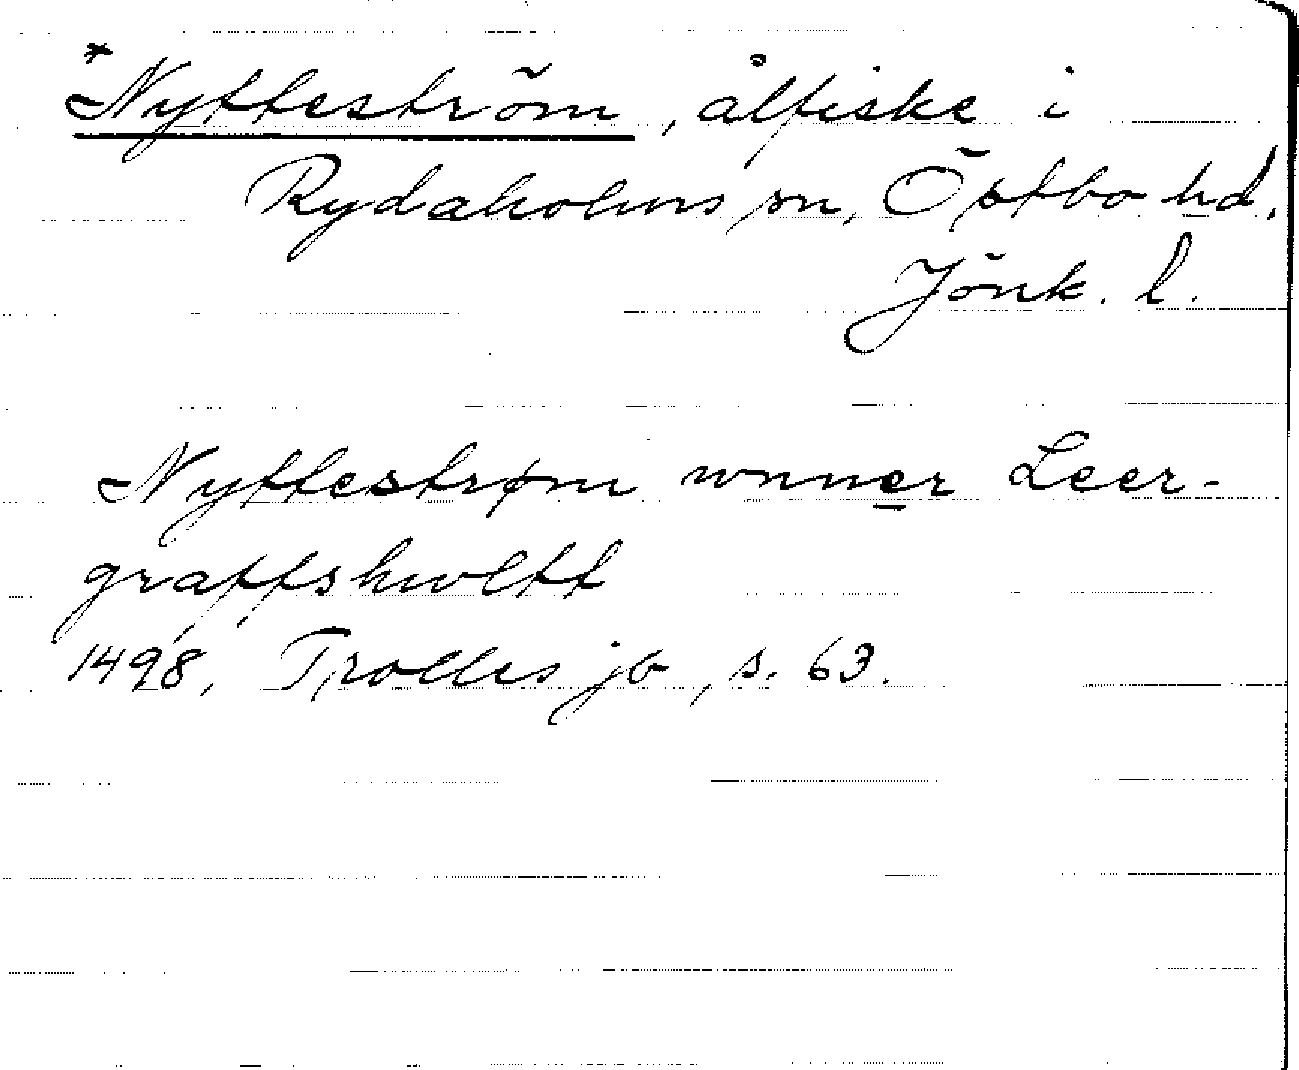 *Nytteström, ålfiske i
Rydaholms sn, Östbo hd,
Jönk. l.
Nyttestrøm wnner Leer-
graffshwltt
1498, Trolles jb, s. 63.